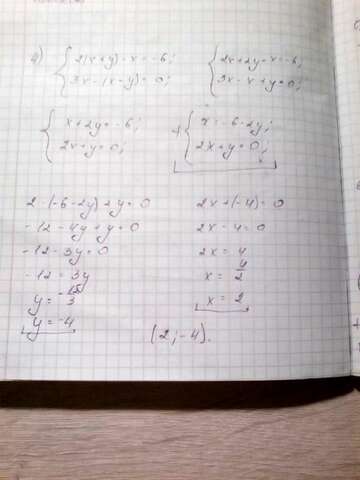 4) { 2(x+y)-x=-6; { 2x+2y-x=-6;
3x-(x-y)=0; 3x-x+y=0;
{ x+2y=-6; { x=-6-2y;
2x+y=0; 2x+y=0;
2·(-6-2y)+y=0
-12-4y+y=0
-12-3y=0
-12=3y
y=-12/3
y=-4
2x+(-4)=0
2x-4=0
2x=4
x=4/2
x=2
(2;-4).